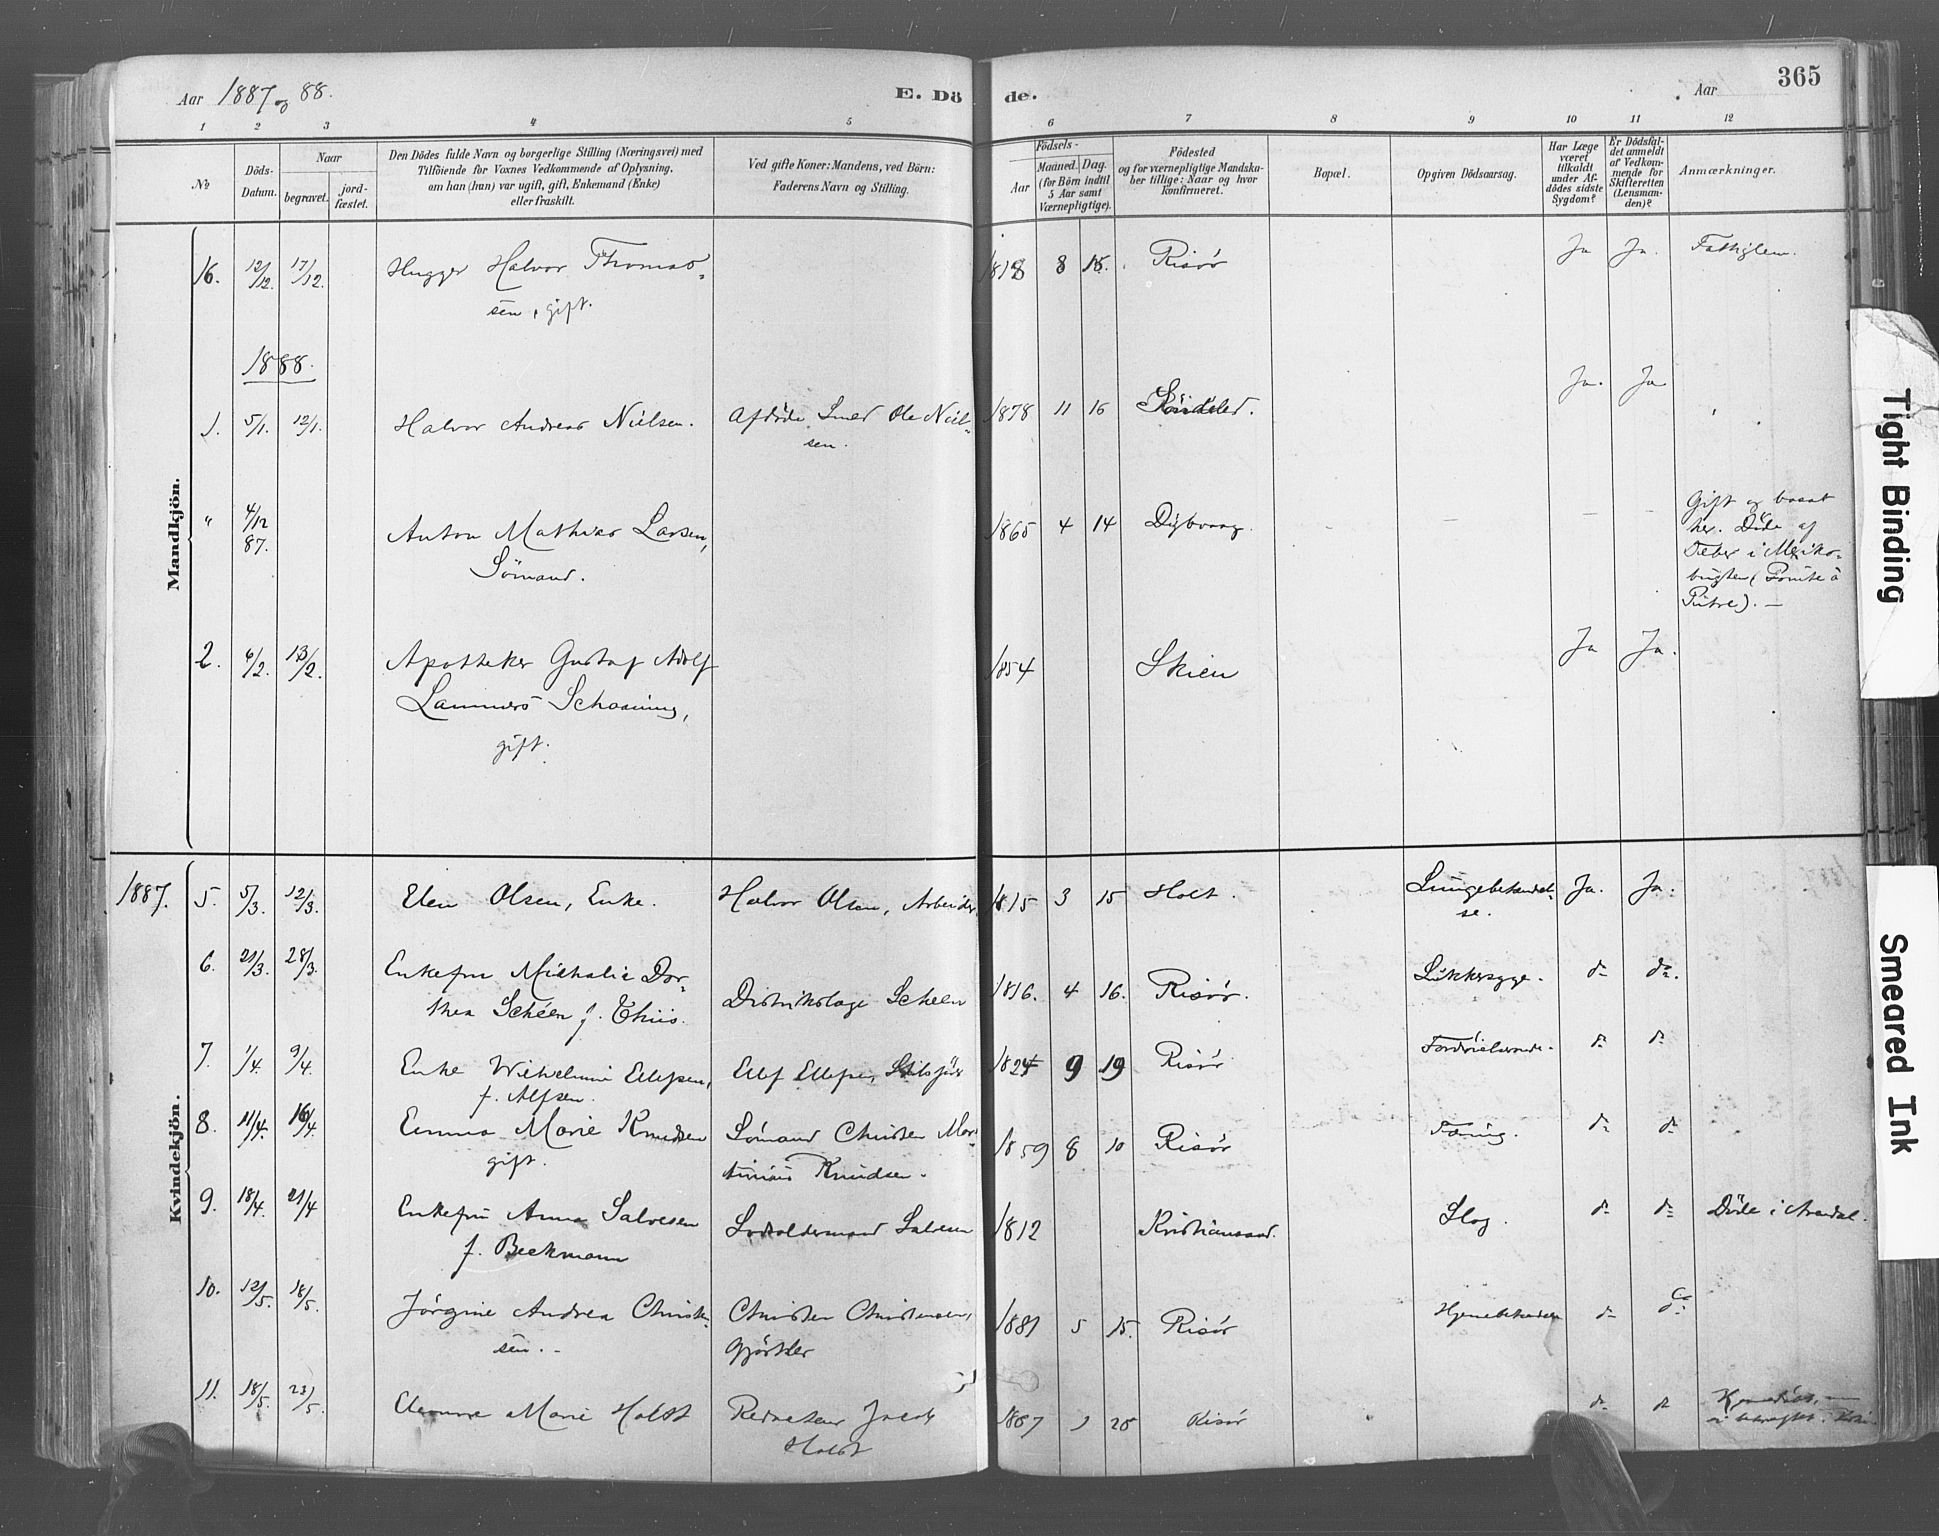 Aar 1887 og 88.
E. Döde.
Aar
365
1 2 3 4 5 6 7 8 9 10 11 12
№
Döds-Datum.
Naar
begravet.
jord-fæstet.
Den Dödes fulde Navn og borgerlige Stilling (Næringsvei) med
Tilföiende for Voxnes Vedkommende af Oplysning,
om han (hun) var ugift, gift, Enkemand (Enke)
eller fraskilt.
Ved gifte Koner: Mandens, ved Börn:
Faderens Navn og Stilling.
Födsels-
Aar
Maaned. Dag.
(for Börn indtil
5 Aar samt
Værnepligtige).
Födested
og for værnepligtige Mandska-
ber tillige: Naar og hvor
konfirmeret.
Bopæl.
Opgiven Dödsaarsag.
Har Læge
været
tilkaldt
under Af-
dödes sidste
Sygdom?
Er Dödsfal-
det anmeldt
af Vedkom-
mende for
Skifteretten
(Lensman-
den)?
Anmærkninger.
Mandkjön.
16. 12/12. 17/12. Hugger Halvor Thomas- 1818 8 15. Risör Ja Ja. Fattiglem.
sen, gift.
1888.
1. 5/1. 12/1. Halvor Andreas Nielsen. Afdöde Smed Ole Niel- 1878 11 16 Söndeled. Ja. Ja
sen.
" 4/12 87. Anton Mathias Larsen, 1865 4 14 Dybvaag. – – Gift og bosat
Sömand.
her. Döde af
Feber i Mexiko-
bugten (Pointe à
Pitre). –
2. 6/2. 13/2. Apotheker Gustaf Adolf 1854 Skien Ja Ja.
Lammers Schaaning,
gift.
Kvindekjön.
1887. 5. 5/3. 12/3. Elen Olsen, Enke. Halvor Olsen, Arbeider 1815 3 15 Holt. Lungebetændel- Ja. Ja.
se.
6. 21/3. 28/3. Enkefru Michalie Dor- Distriktslæge Scheen 1816. 4 16. Risör. Sukkersyge. do do.
thea Scheen f. Thiis.
7. 1/4. 9/4. Enke Wilhelmine Ellefsen, Ellef Ellefsen, 1824 9 19 Risör do do
f. Alfsen.
8. 11/4. 16/4. Emma Marie Knudsen Sömand Christen Mar- 1859 8 10 Risör Tæring. do do
gift.
tinius Knudsen.
9. 18/4. 21/4 Enkefru Anna Salvesen Lodsoldermand Salvesen 1812 Kristianssand. Slag. do do Döde i Arendal.
f. Beckmann
10. 12/5. 18/5. Jörgine Andrea Christen- Christen Christensen, 1881 5 15. Risör Hjernebetændelse do do
sen. –
Gjörtler
11. 18/5. 23/5 Marie Holst Redacteur Jacob 1887 28 Risör do do
Holst
Tight Binding
Smeared Ink